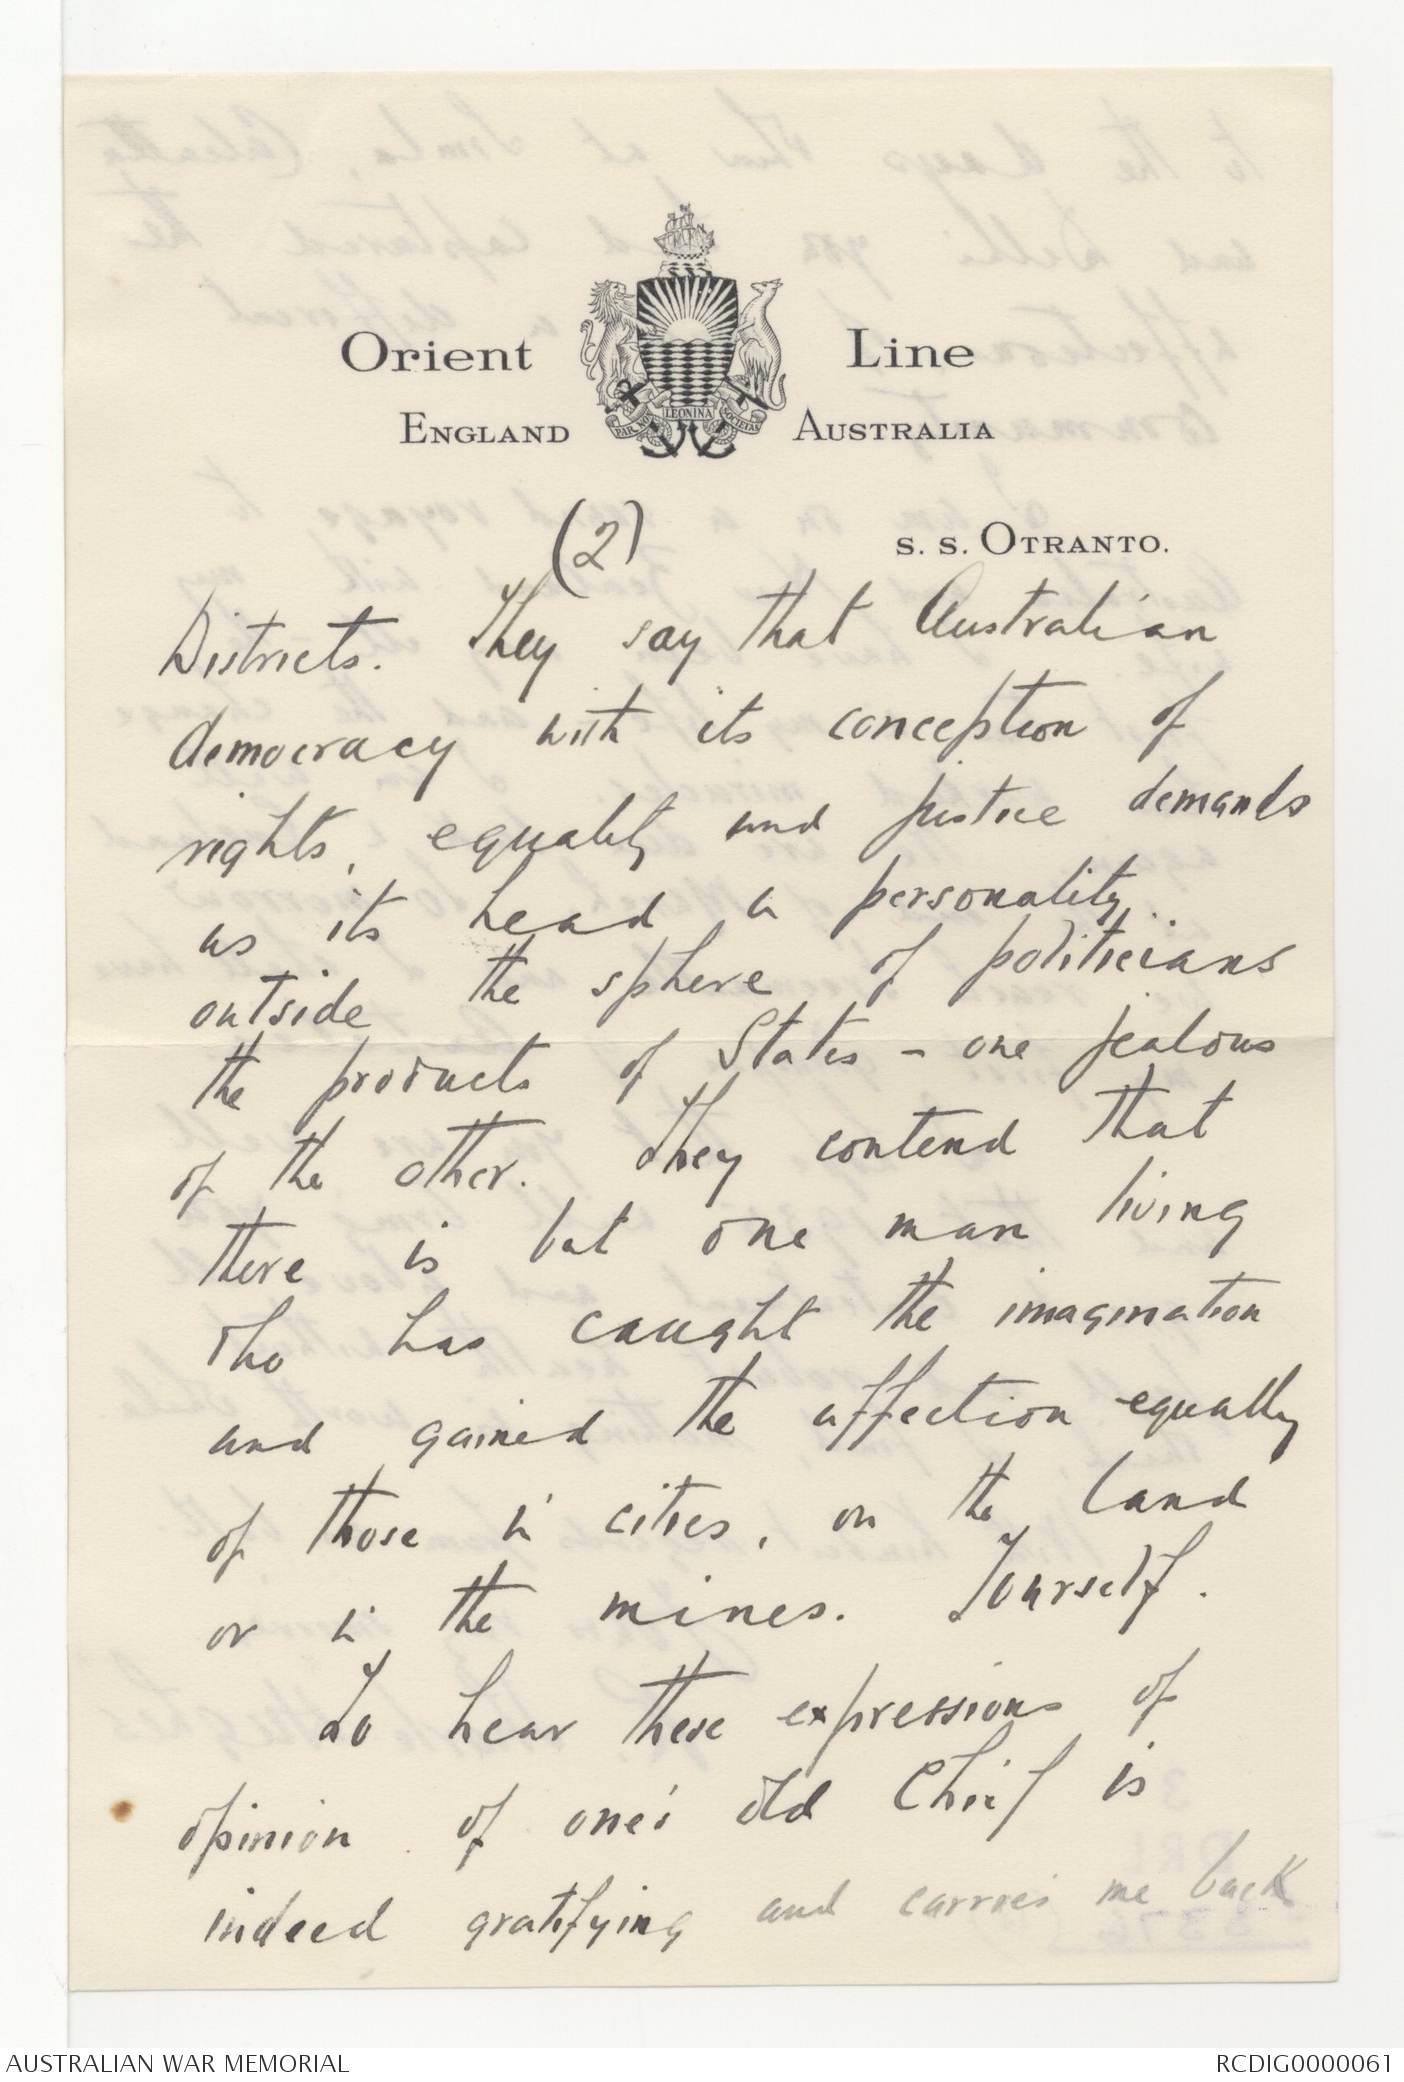 Orient Line
ENGLAND AUSTRALIA
PAR NON LEONINA SOCIETAS
(2)
S. S. OTRANTO.
Districts. They say that Australian
democracy with its conception of
rights, equality and justice demands
as its head a personality
outside the sphere of politicians
the products of States - one jealous
of the other. They contend that
there is but one man living
who has caught the imagination
and gained the affection equally
of those in cities, on the land
or in the mines. Yourself.
To hear these expressions of
opinion of one's old Chief is
indeed gratifying and carries me back
AUSTRALIAN WAR MEMORIAL
RCDIG0000061